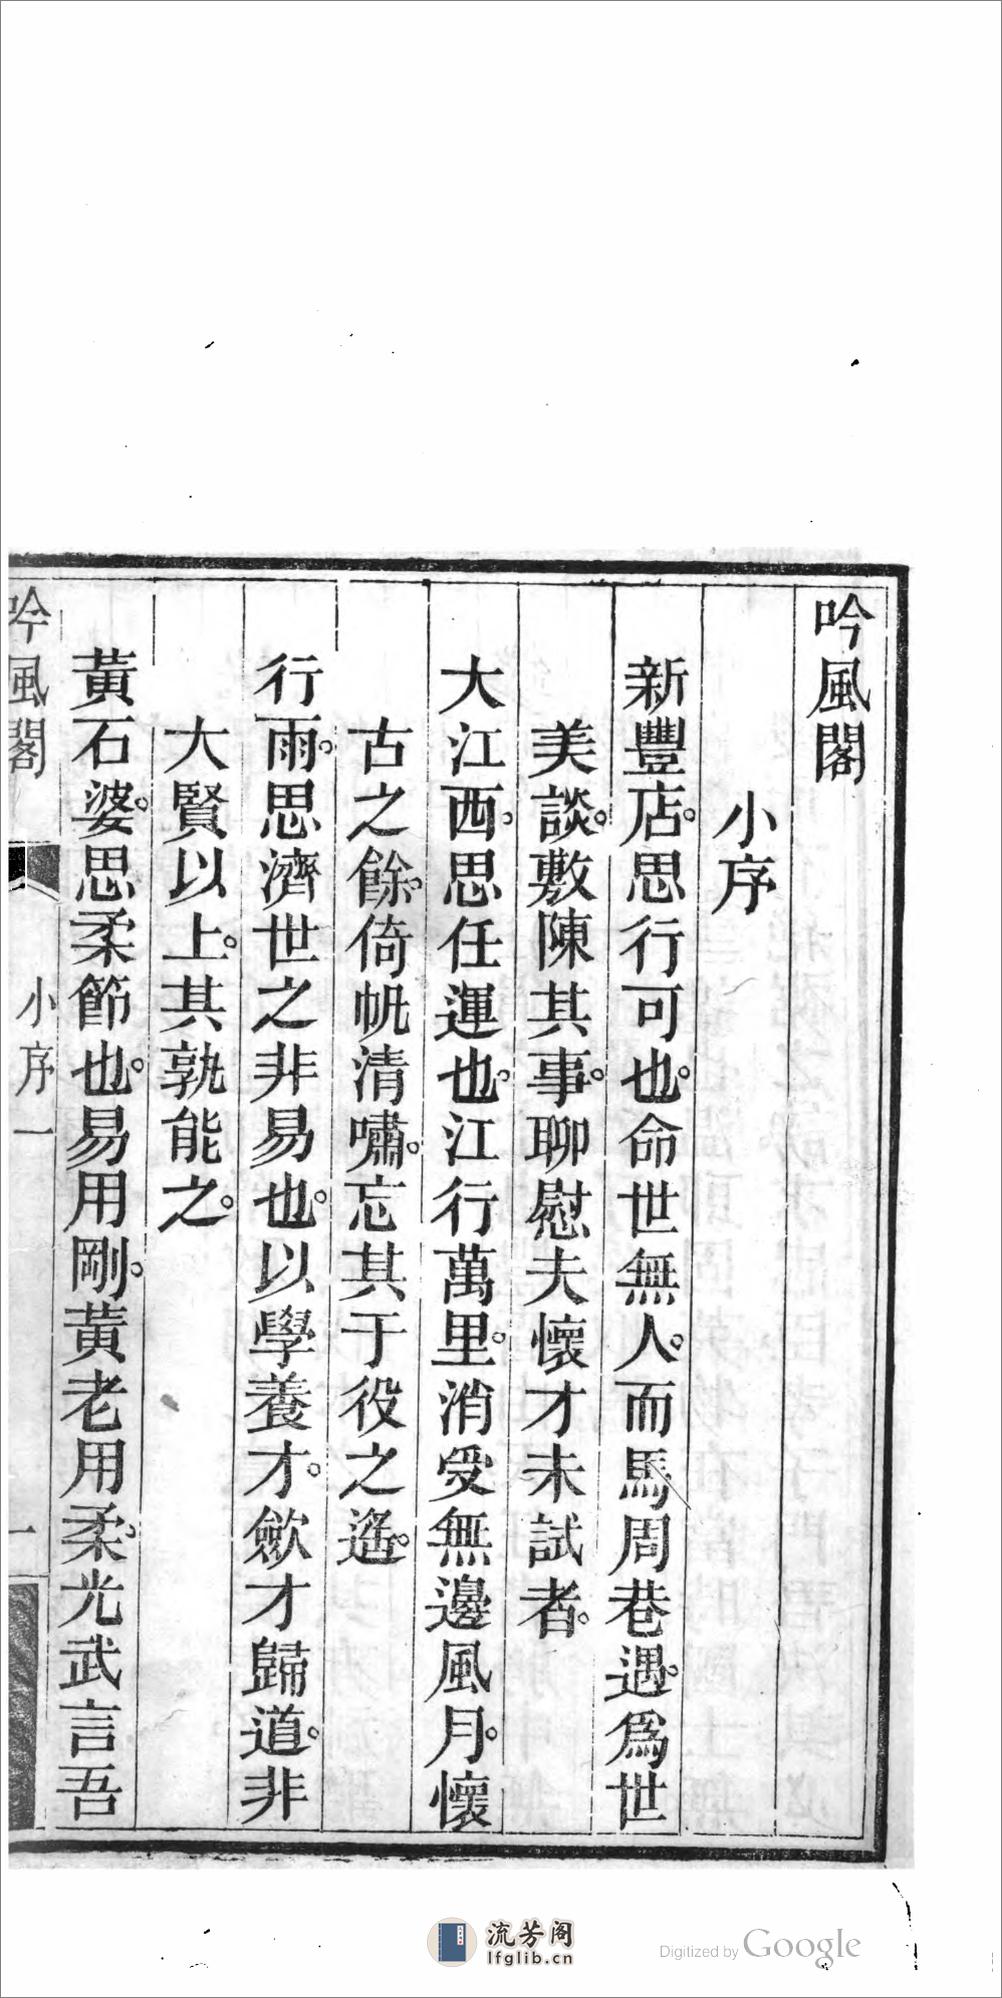 吟風閣
小序
新豐店。思行可也。命世無人。而馬周巷遇。爲世
美談。敷陳其事。聊慰夫懷才未試者。
大江西。思任運也。江行萬里。消受無邊風月。懷
古之餘。倚帆清嘯。忘其于役之遙。
行雨。思濟世之非易也。以學養才。斂才歸道。非
大賢以上。其孰能之。
黃石婆。思柔節也。易用剛。黃老用柔。光武言吾
吟風閣
小序一
一
流芳阁
lfglib.cn
Digitized by Google